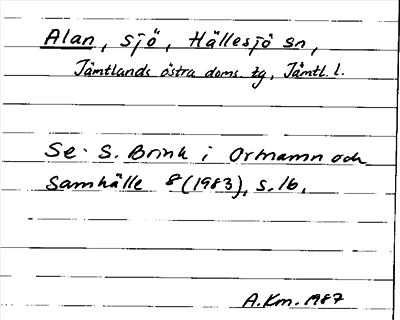 Alan, sjö, Hällesjö sn,
Jämtlands östra doms. tg, Jämtl. l.
Se S. Brink i Ortnamn och
samhälle 8 (1983), s. 16.
A.Km. 1987